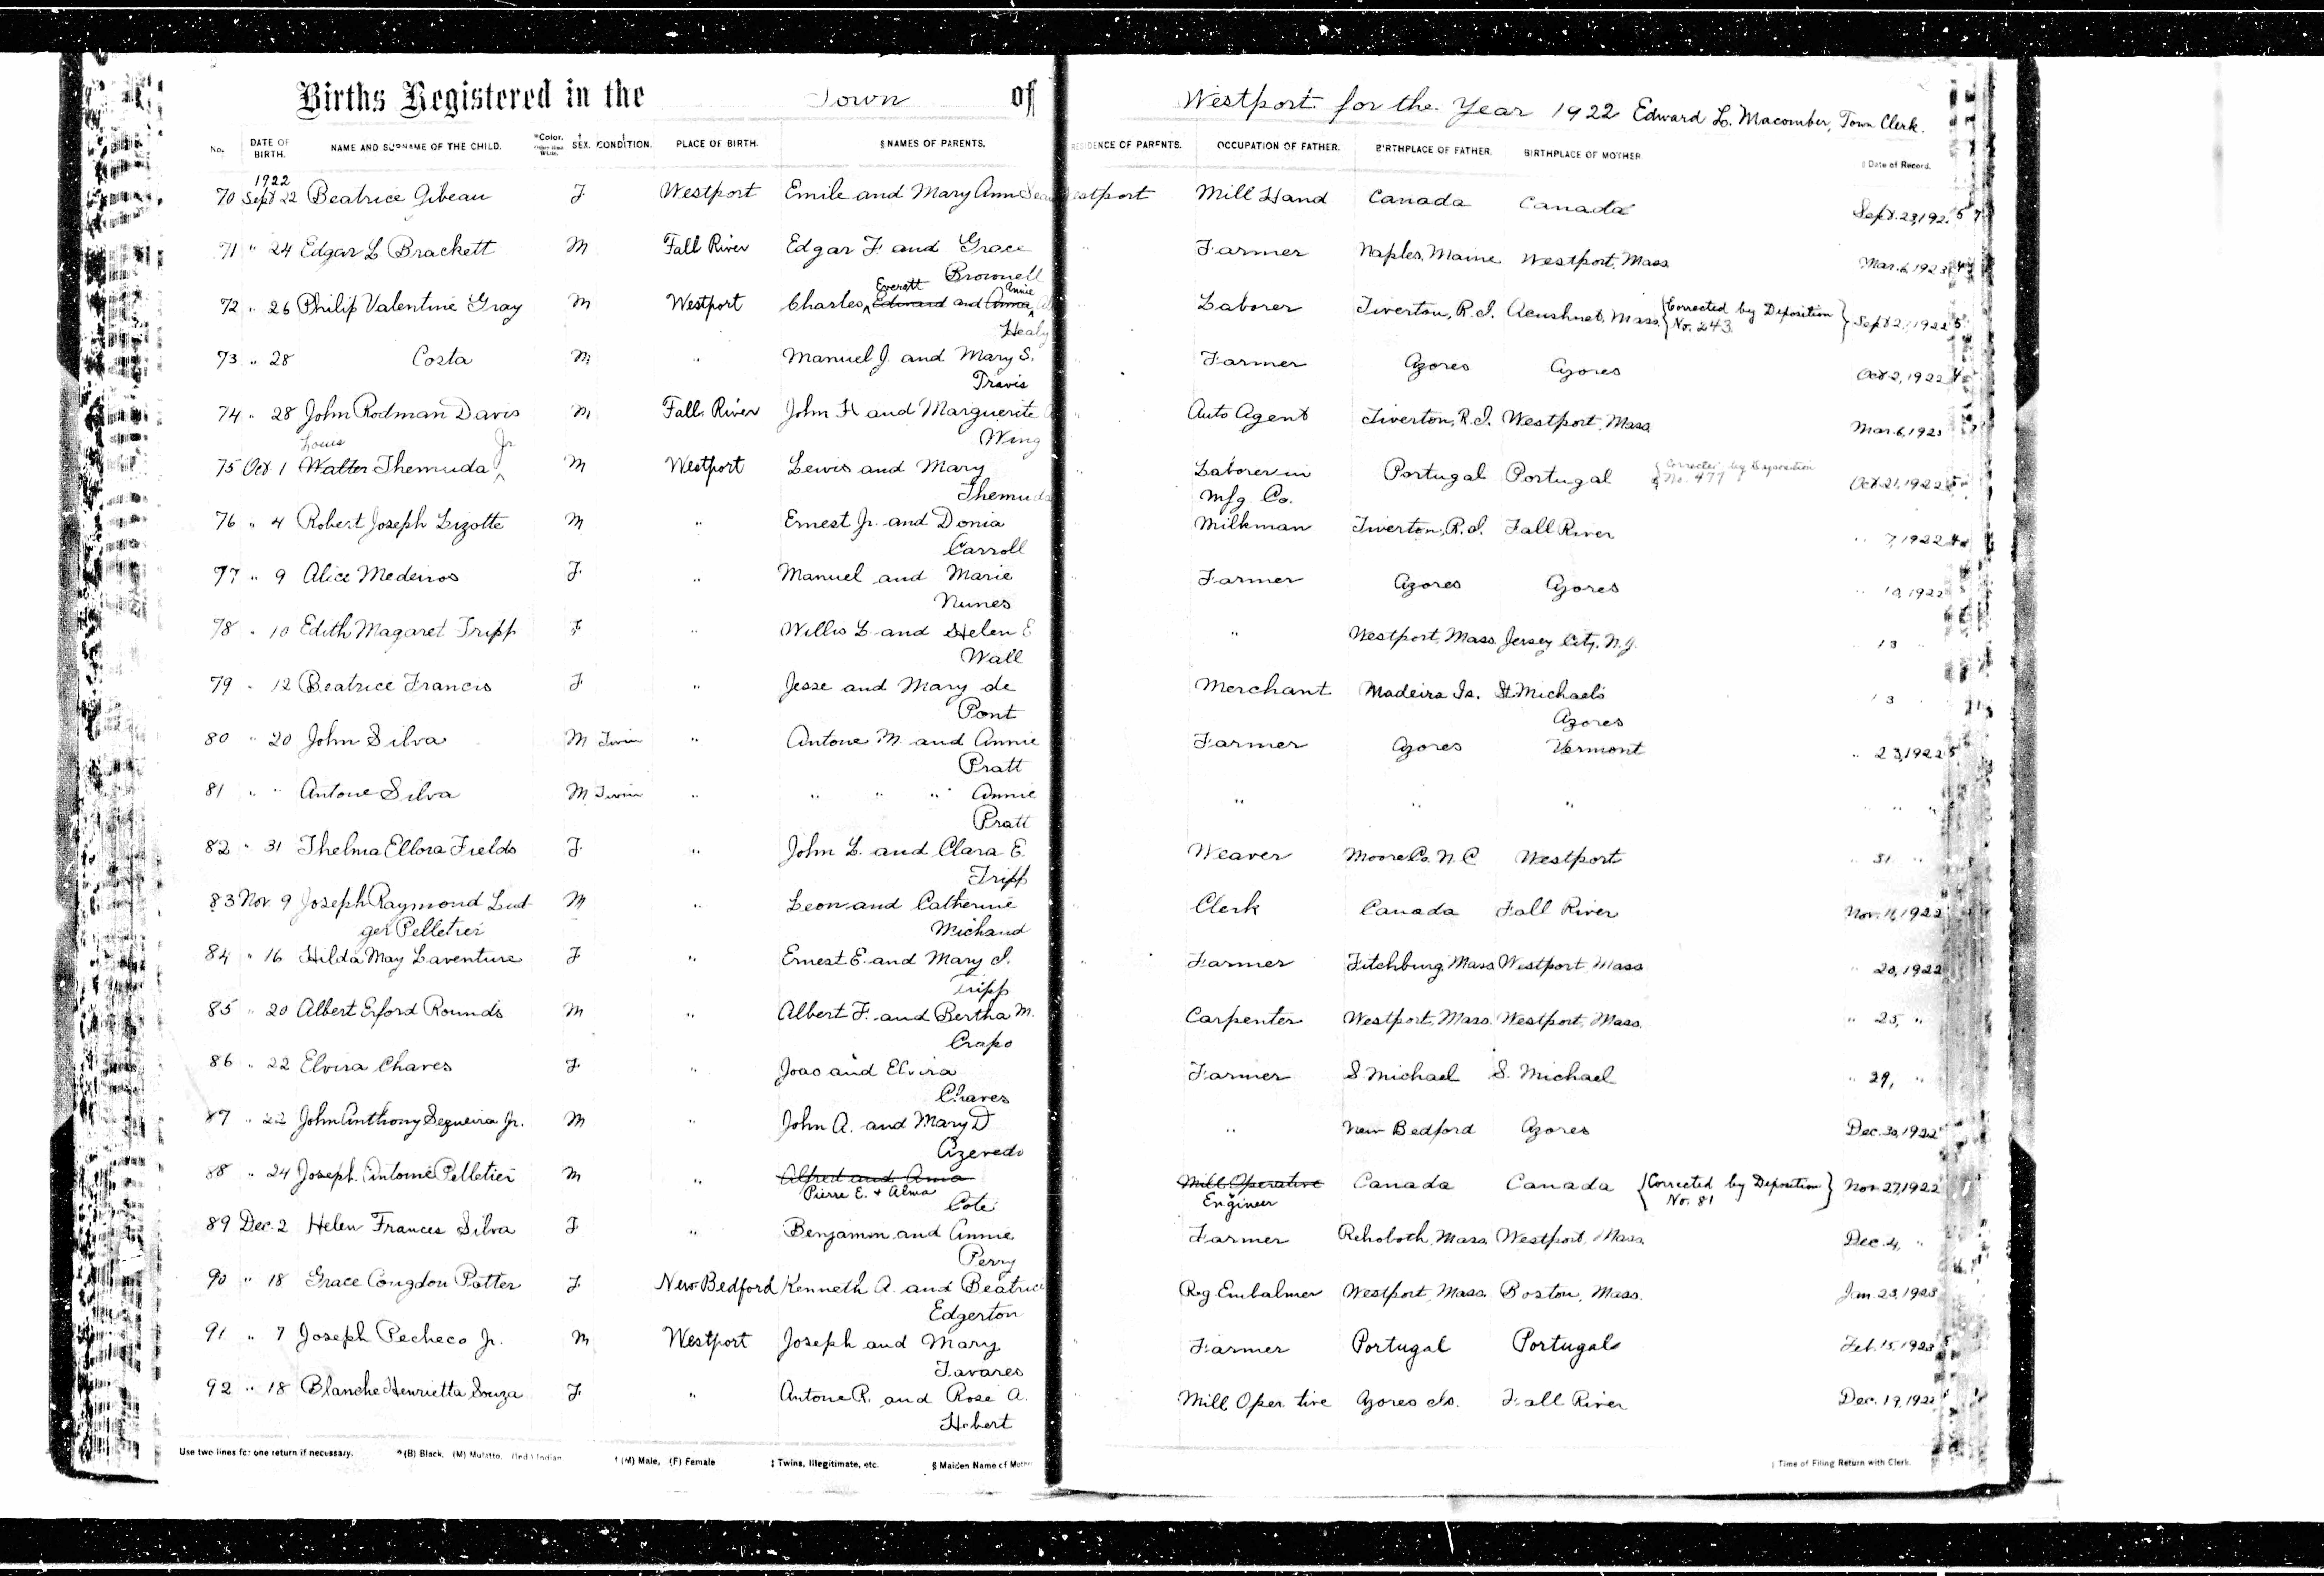 Births Registered in the Town of Westport for the Year 1922 Edward L. Macomber, Town Clerk.
No. DATE OF BIRTH. NAME AND SURNAME OF THE CHILD. *Color. Other than White. SEX. CONDITION. PLACE OF BIRTH. §NAMES OF PARENTS. RESIDENCE OF PARENTS. OCCUPATION OF FATHER. BIRTHPLACE OF FATHER. BIRTHPLACE OF MOTHER Date of Record.
1922
70 Sept 22 Beatrice Gibeau F Westport Emile and Mary Ann Westport Mill Hand Canada Canada Sept. 23, 192
71 " 24 Edgar L Brackett M Fall River Edgar F. and Grace " Farmer Naples, Maine Westport, Mass. Mar. 6, 1923
Brownell
Everett Annie
72 " 26 Philip Valentine Gray M Westport Charles Edward and Anna Laborer Tiverton, R.I. Acushnet, Mass. {Corrected by Deposition No. 243.} Sept 2, 1922
Healy
73 " 28 Costa M " Manuel J. and Mary S. Farmer Azores Azores Oct. 2, 1922
Travis
74 " 28 John Rodman Davis M Fall River John H and Marguerite " Auto Agent Tiverton, R.I. Westport, Mass. Mar. 6, 192
Wing
Louis Jr
75 Oct. 1 Walter Themuda M Westport Lewis and Mary " Laborer in Portugal Portugal {Corrected by Deposition No. 477 Oct. 21, 1922
Themuda Mfg Co.
76 " 4 Robert Joseph Lizotte M " Ernest Jr. and Donia " Milkman Tiverton, R.I. Fall River " 7, 1922
Carroll
77 " 9 Alice Medeiros F " Manuel and Marie " Farmer Azores Azores " 10, 1922
Nunes
78 " 10 Edith Magaret Tripp F " Willis L. and Helen E " Westport, Mass. Jersey City, N.J. 13 "
Wall
79 " 12 Beatrice Francis F " Jesse and Mary de Merchant Madeira Is. St. Michaels 3
Pont Azores
80 " 20 John Silva M Twin " Antone M. and Annie Farmer Azores Vermont " 23, 1922
Pratt
81 " " Antone Silva M Twin " " " " Annie " " " " " "
Pratt
82 " 31 Thelma Ellora Fields F " John L. and Clara E. Weaver Moore Co. N.C Westport " 31 "
Tripp
83 Nov. 9 Joseph Raymond Lud- M " Leon and Catherine Clerk Canada Fall River Nov. 11, 1922
ger Pelletier Michaud
84 " 16 Hilda May Laventure F " Ernest E. and Mary I. " Farmer Fitchburg, Mass Westport, Mass " 20, 1922
Tripp
85 " 20 Albert Erford Rounds M " Albert F. and Bertha M. Carpenter Westport, Mass. Westport, Mass. " 25, "
Crapo
86 " 22 Elvira Chaves F " Joao and Elvira Farmer S. Michael S. Michael " 29, "
Chaves
87 " 22 John Anthony Sequeira Jr. M " John A. and Mary D " New Bedford Azores Dec. 30, 1922
Azevedo
88 " 24 Joseph Antoine Pelletier M " Alfred and Anna Mill Operative Canada Canada {Corrected by Deposition No. 81} Nov 27, 1922
Pierre E. & Alma Engineer
Coté
89 Dec. 2 Helen Frances Silva F " Benjamin and Annie Farmer Rehoboth, Mass. Westport, Mass. Dec. 4, "
Perry
90 " 18 Grace Congdon Potter F New Bedford Kenneth A. and Beatrice Reg. Embalmer Westport, Mass. Boston, Mass. Jan. 23, 1923
Edgerton
91 " 7 Joseph Pecheco Jr. M Westport Joseph and Mary " Farmer Portugal Portugal Feb. 15, 1923
Tavares
92 " 18 Blanche Henrietta Souza F " Antone R. and Rose A. Mill Oper tive Azores Is. Fall River Dec. 19, 192
Hebert
Use two lines for one return if necessary. *(B) Black, (M) Mulatto, (Ind.) Indian †(M) Male, (F) Female ‡Twins, Illegitimate, etc. §Maiden Name of Mother Time of Filing Return with Clerk.